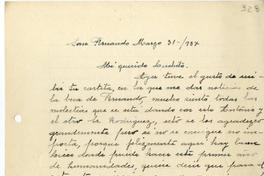 328
San Fernando Marzo 31-/934
Mi querido Luchito:
Ayer tuve el gusto de reci
bir tu cartita, en la que me das noticias de
la boca de Fernando, mucho siento todas las
molestias que se está dando con esto Antonio y
el otro la Rodríguez, esto se los agradezco
grandemente pero si no se consigue no im
porta, porque felizmente aquí hay buen
liceo donde puede hacer este primer año
de humanidades, quiere decir que para el